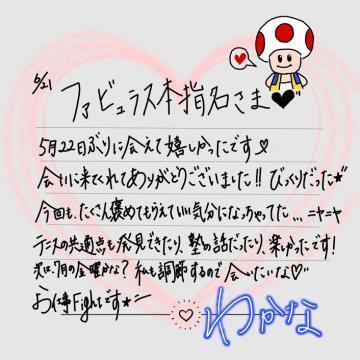 6/21
ファビュラス本指名さま♥
5月22日ぶりに会えて嬉しかったです♡
会いに来てくれてありがとうございました!! びっくりだった★
今回も、たくさん褒めてもらえていい気分になっちゃってた...ニヤニヤ
テニスの共通点も発見できたり、塾の話だったり、楽しかったです!
次は、7月の金曜かな? 私も調節するので会いたいな♡
お仕事Fightです★
わかな